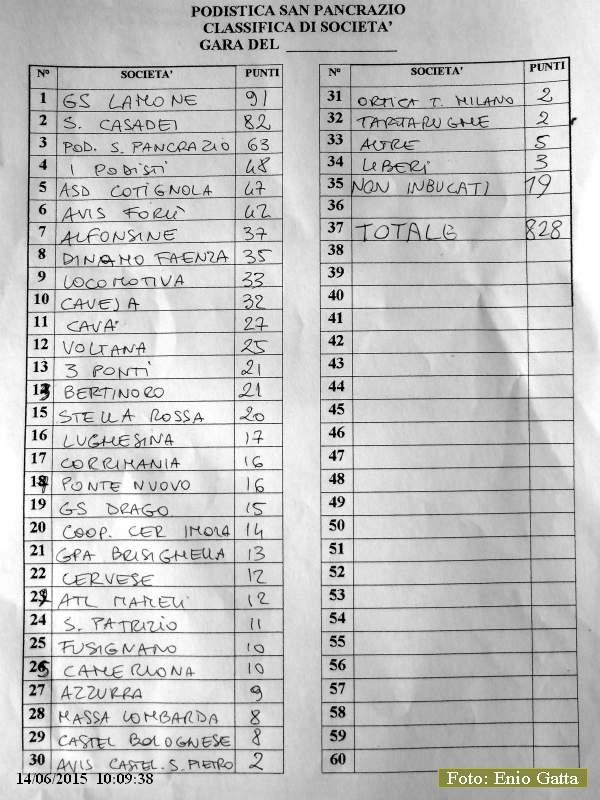 PODISTICA SAN PANCRAZIO
CLASSIFICA DI SOCIETA'
GARA DEL
N° SOCIETA' PUNTI
1 GS LAMONE 91
2 S. CASADEI 82
3 POD. S. PANCRAZIO 63
4 I PODISTI 48
5 ASD COTIGNOLA 47
6 AVIS FORLI' 42
7 ALFONSINE 37
8 DINAMO FAENZA 35
9 LOCOMOTIVA 33
10 CAVEJA 32
11 CAVA' 27
12 VOLTANA 25
13 3 PONTI 21
13 BERTINORO 21
15 STELLA ROSSA 20
16 LUGHESINA 17
17 CORRIMANIA 16
17 PONTE NUOVO 16
19 GS DRAGO 15
20 COOP. CER IMOLA 14
21 GPA BRISIGHELLA 13
22 CERVESE 12
22 ATL MAMELI 12
24 S. PATRIZIO 11
25 FUSIGNANO 10
25 CAMERLONA 10
27 AZZURRA 9
28 MASSA LOMBARDA 8
29 CASTEL BOLOGNESE 8
30 AVIS CASTEL S. PIETRO 2
N° SOCIETA' PUNTI
31 ORTICA T. MILANO 2
32 TARTARUGHE 2
33 ALTRE 5
34 LIBERI 3
35 NON INBUCATI 19
36
37 TOTALE 828
38
39
40
41
42
43
44
45
46
47
48
49
50
51
52
53
54
55
56
57
58
59
60
14/06/2015 10:09:38
Foto: Enio Gatta